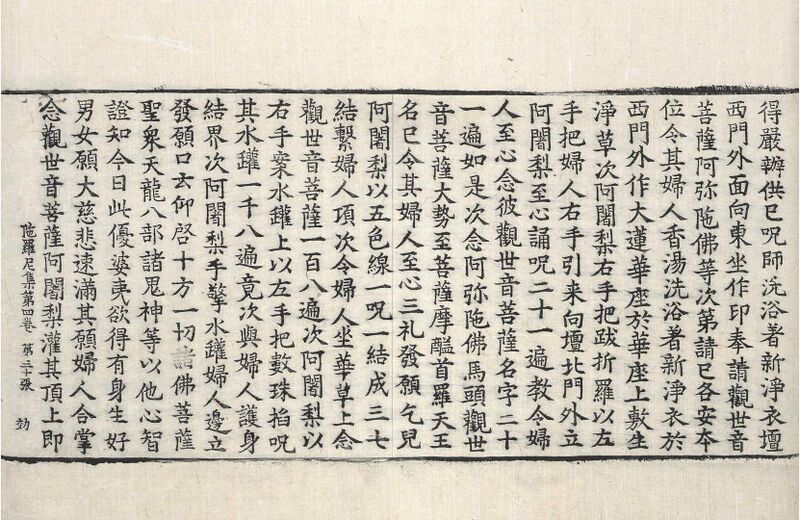 得嚴辦供已呪師洗浴著新淨衣壇
西門外面向東坐作印奉請觀世音
菩薩阿弥陁佛等次第請已各安本
位令其婦人香湯洗浴著新淨衣於
西門外作大蓮華座於華座上敷生
淨草次阿闍梨右手把跋折羅以左
手把婦人右手引来向壇北門外立
阿闍梨至心誦呪二十一遍教令婦
人至心念彼觀世音菩薩名字二十
一遍如是次念阿弥陁佛馬頭觀世
音菩薩大勢至菩薩摩醯首羅天王
名已令其婦人至心三礼發願乞兒
阿闍梨以五色線一呪一結成三七
結繫婦人項次令婦人坐華草上念
觀世音菩薩一百八遍次阿闍梨以
右手案水罐上以左手把數珠掐呪
其水罐一千八遍竟次與婦人護身
結界次阿闍梨手擎水罐婦人邊立
發願口云仰啓十方一切諸佛菩薩
聖衆天龍八部諸鬼神等以他心智
證知今日此優婆夷欲得有身生好
男女願大慈悲速滿其願婦人合掌
念觀世音菩薩阿闍梨灌其頂上即
陁羅尼集第四卷 第三十張 効